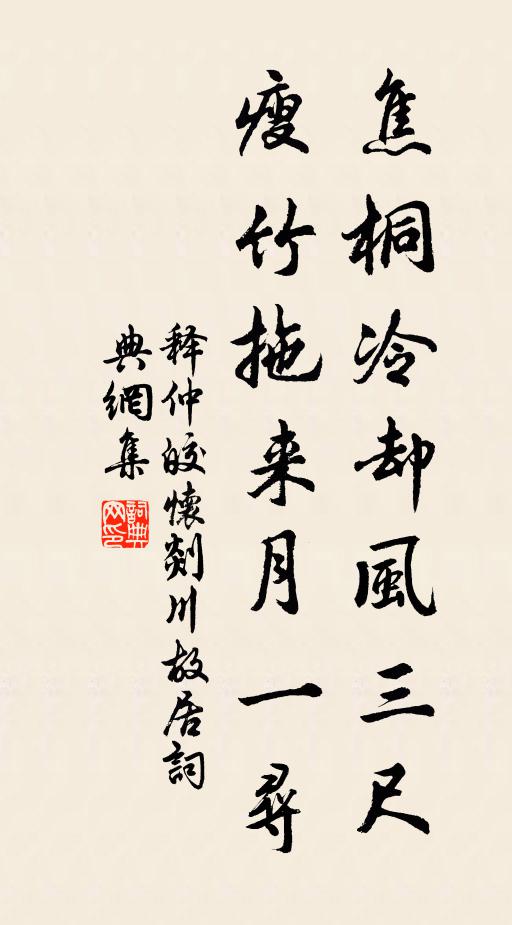 焦桐冷却風三尺
瘦竹拖来月一尋
释仲皎懷剡川故居詞
典網集
詞典
网印